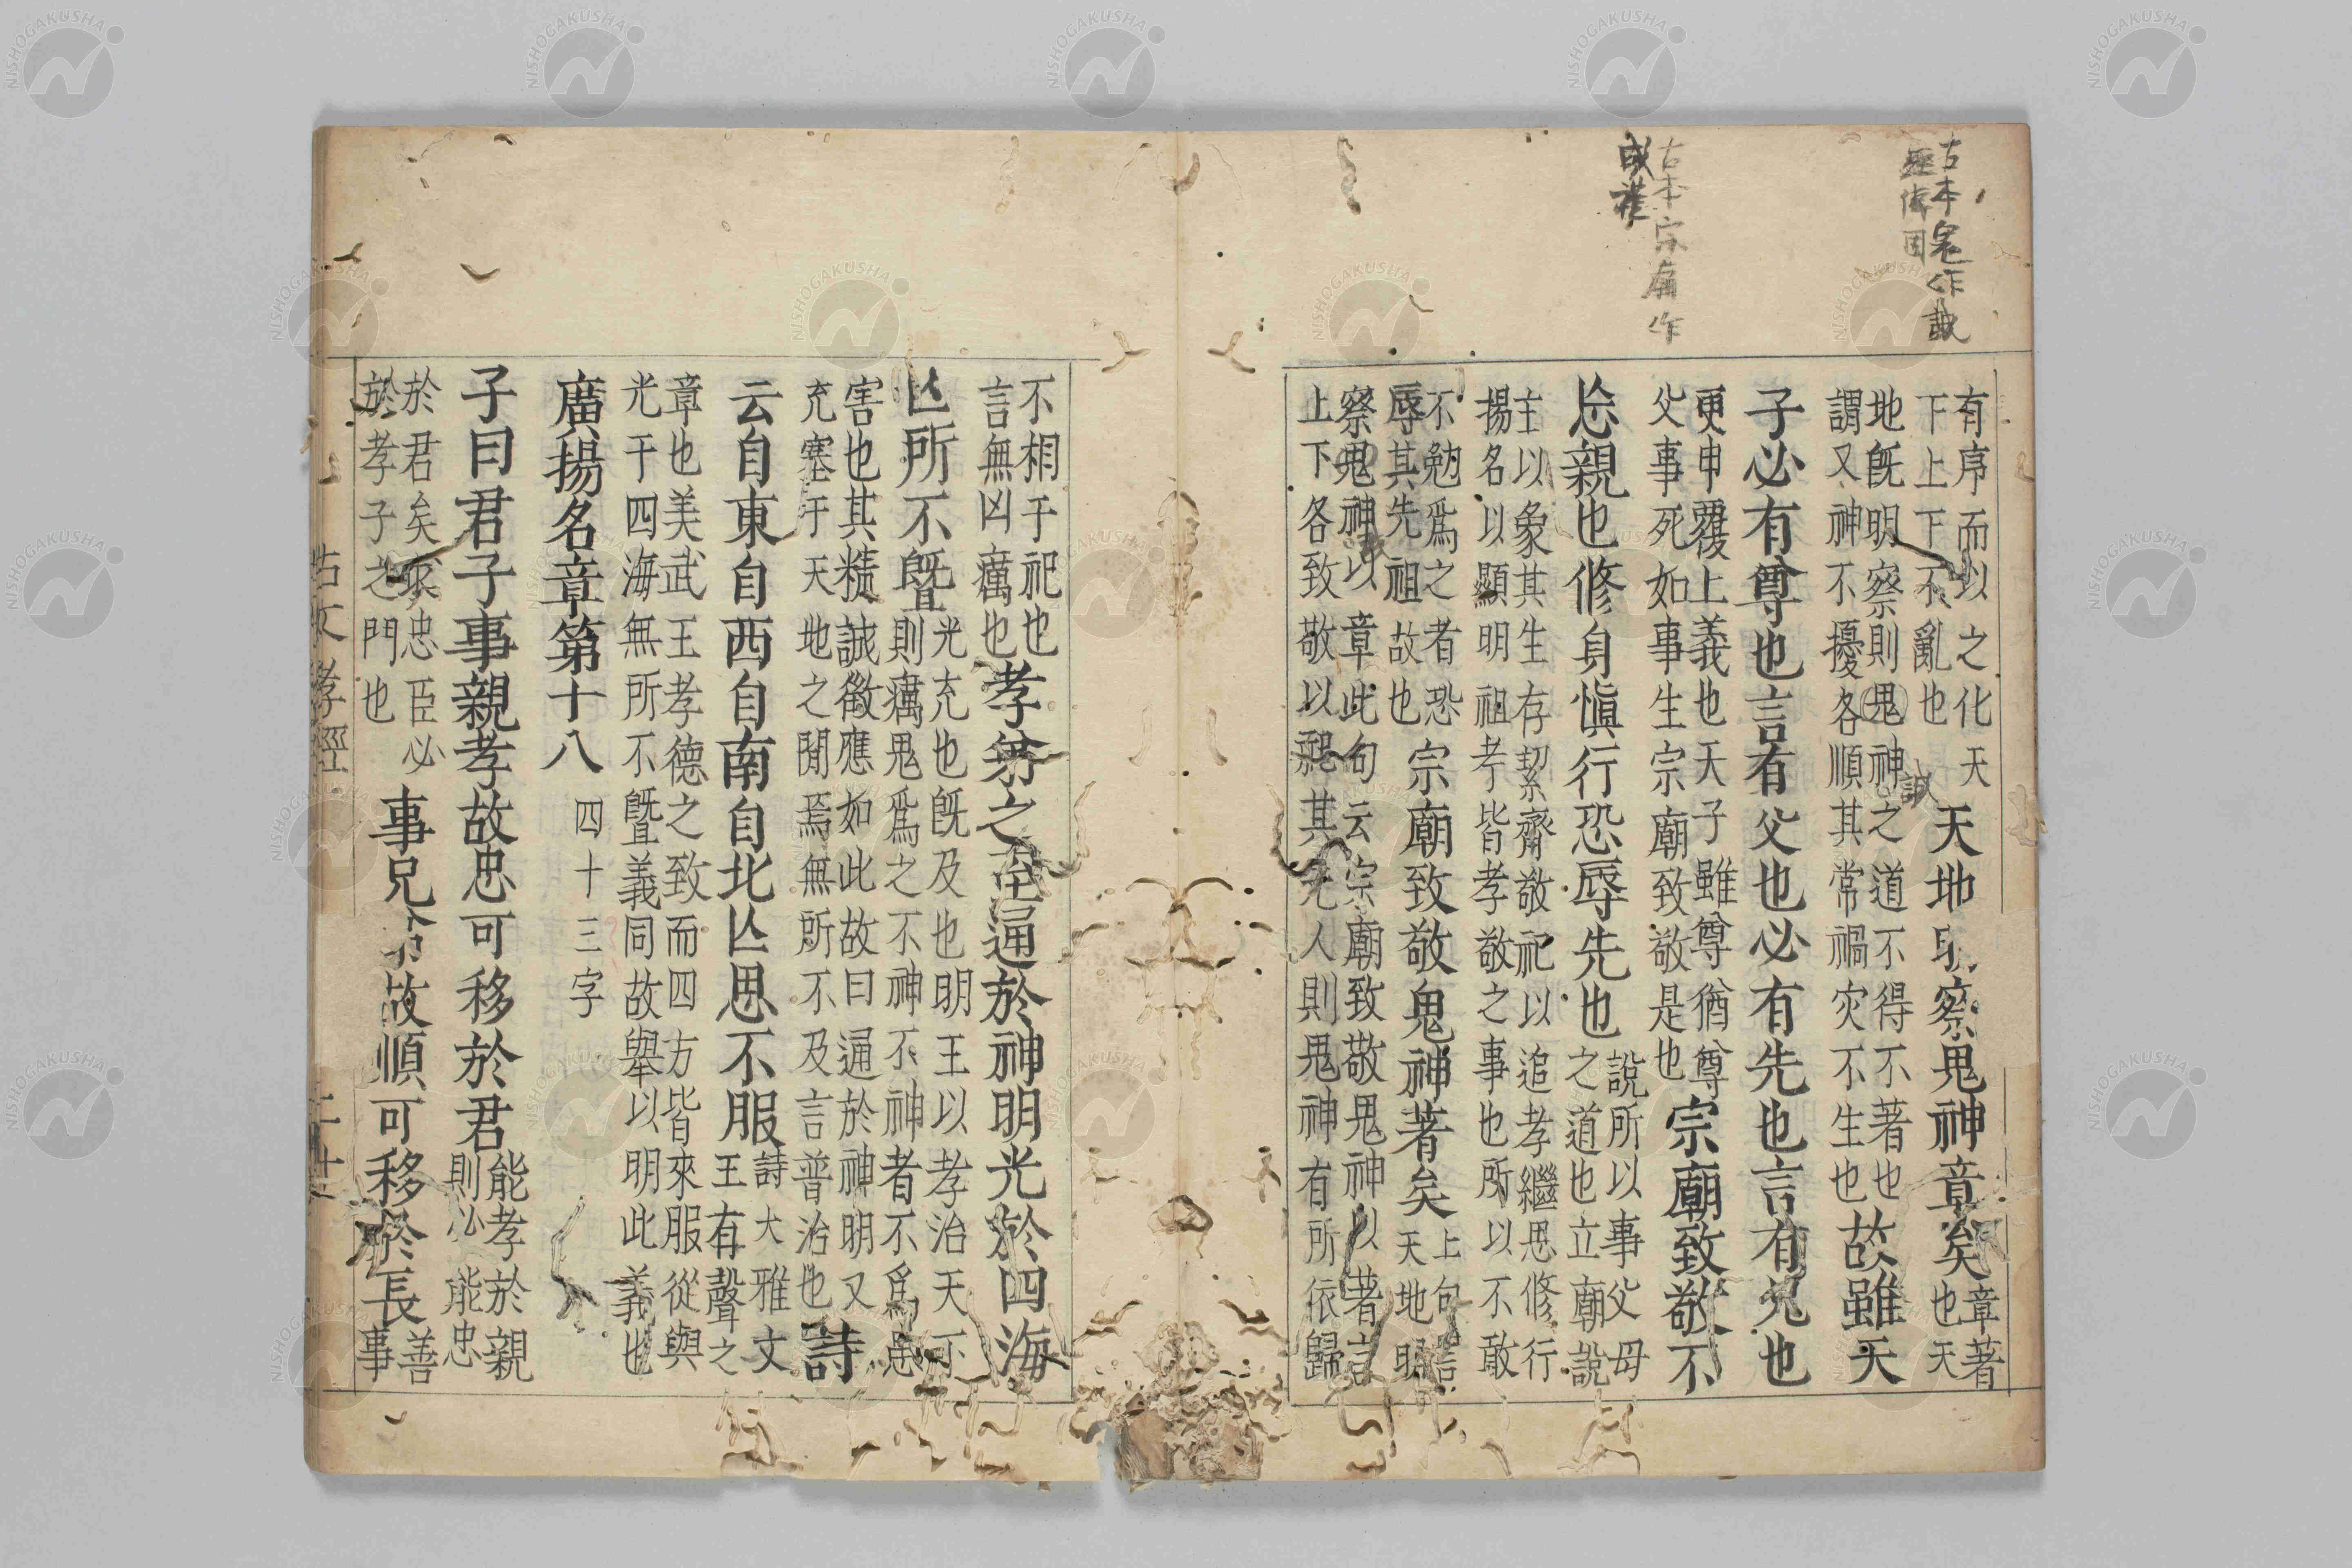 古本鬼作誠
有序而以之化天
下上下不亂也
天地明察鬼神章矣
章著
也天
地既明察則鬼神之道不得不著也
謂又神不擾各順其常禍灾不生也
故雖天
誠
子必有尊也言有父也必有先也言有兄也
更申覆上義也天子雖尊猶尊
父事死如事生宗廟致敬是也
宗廟致敬不
古本宗廟作
忘親也修身愼行恐辱先也
說所以事父母
之道也立廟說
主以象其生存絜齋敬祀以追孝繼思修行
揚名以顯明祖考皆孝敬之事也所以不敢
不勉爲之者恐
辱其先祖故也
宗廟致敬鬼神著矣
上句言
天地明
察鬼神以章此句云宗廟致敬鬼神以著言
上下各致敬以祀其先人則鬼神有所依歸
不相于祀也
言無凶癘也
孝弟之至通於神明光於四海
亡所不曁
光充也既及也明王以孝治天下
則癘鬼爲之不神不神者不爲患
害也其精誠徵應如此故曰通於神明又
充塞于天地之間焉無所不及言普治也
詩
云自東自西自南自北亡思不服
詩大雅文
王有聲之
章也美武王孝德之致而四方皆來服從與
光于四海無所不曁義同故舉以明此義也
廣揚名章第十八
四十三字
子曰君子事親孝故忠可移於君
能孝於親
則必能忠
於君矣求忠臣必
於孝子之門也
事兄弟故順可移於長
善
事
古文孝經